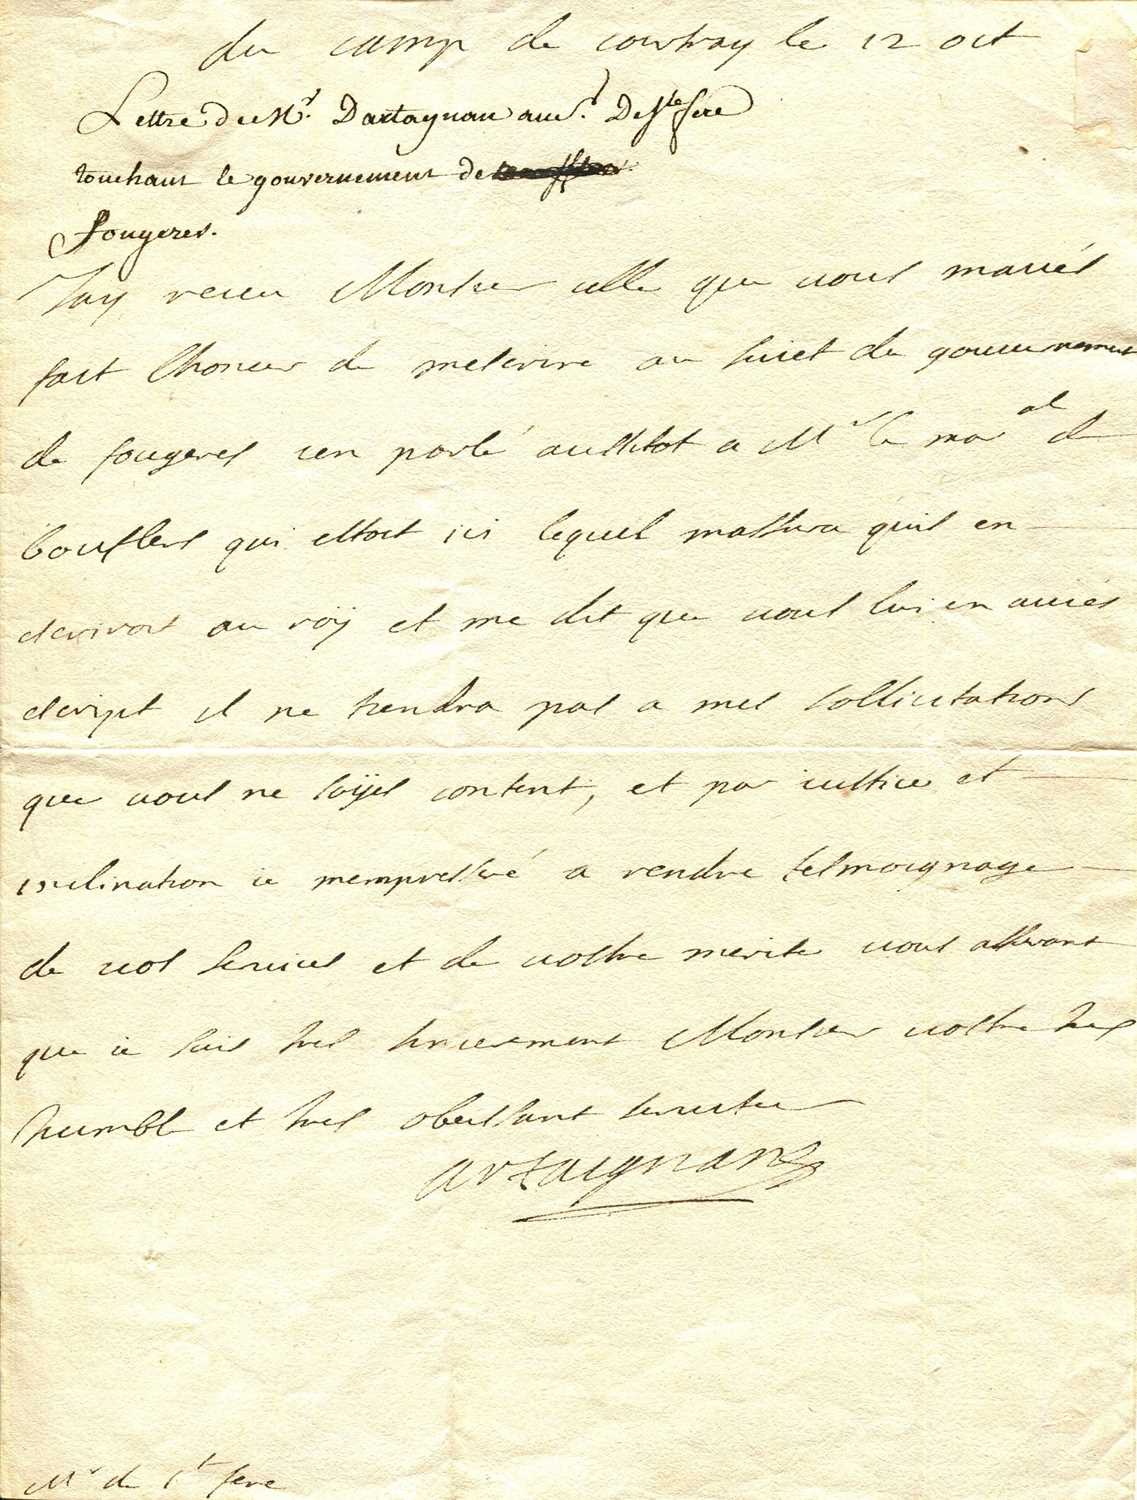 du camp de courtray le 12 oct
Lettre de Mr. Dartagnan au Sr. De Ste fere
touchant le gouvernement de
fougeres.
Jay receu Monsieur celle que vous mavés
fait lhoneur de mescrire au suiet du gouuernement
de fougeres ien parlé aussitot a Mr le maral de
bouflers qui estoit ici lequel massura quil en
escriroit au roy et me dit que vous lui en aviés
escript il ne tiendra pas a mes sollicitations
que vous ne soÿes content, et par iustice et
inclination ie mempresseré a rendre tesmoignage
de vos services et de vostre merite vous assurant
que ie suis tres sincerement Monsieur vostre tres
humble et tres obeissant seruiteur
artaignan
Mr de Ste fere